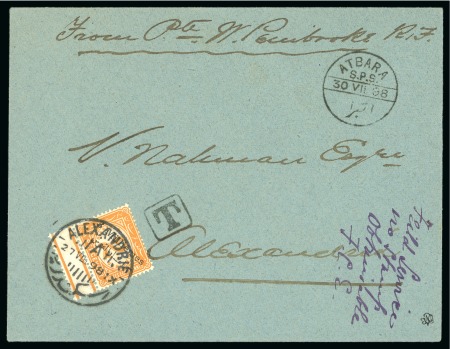 From Pte. W. Pembrooke R.F.
ATBARA
S.P.S.
30 VII 98
V. Nahman Esqre
T
ALEXANDRIE
Alexandria
Field Service
no Stamps
Obtainable